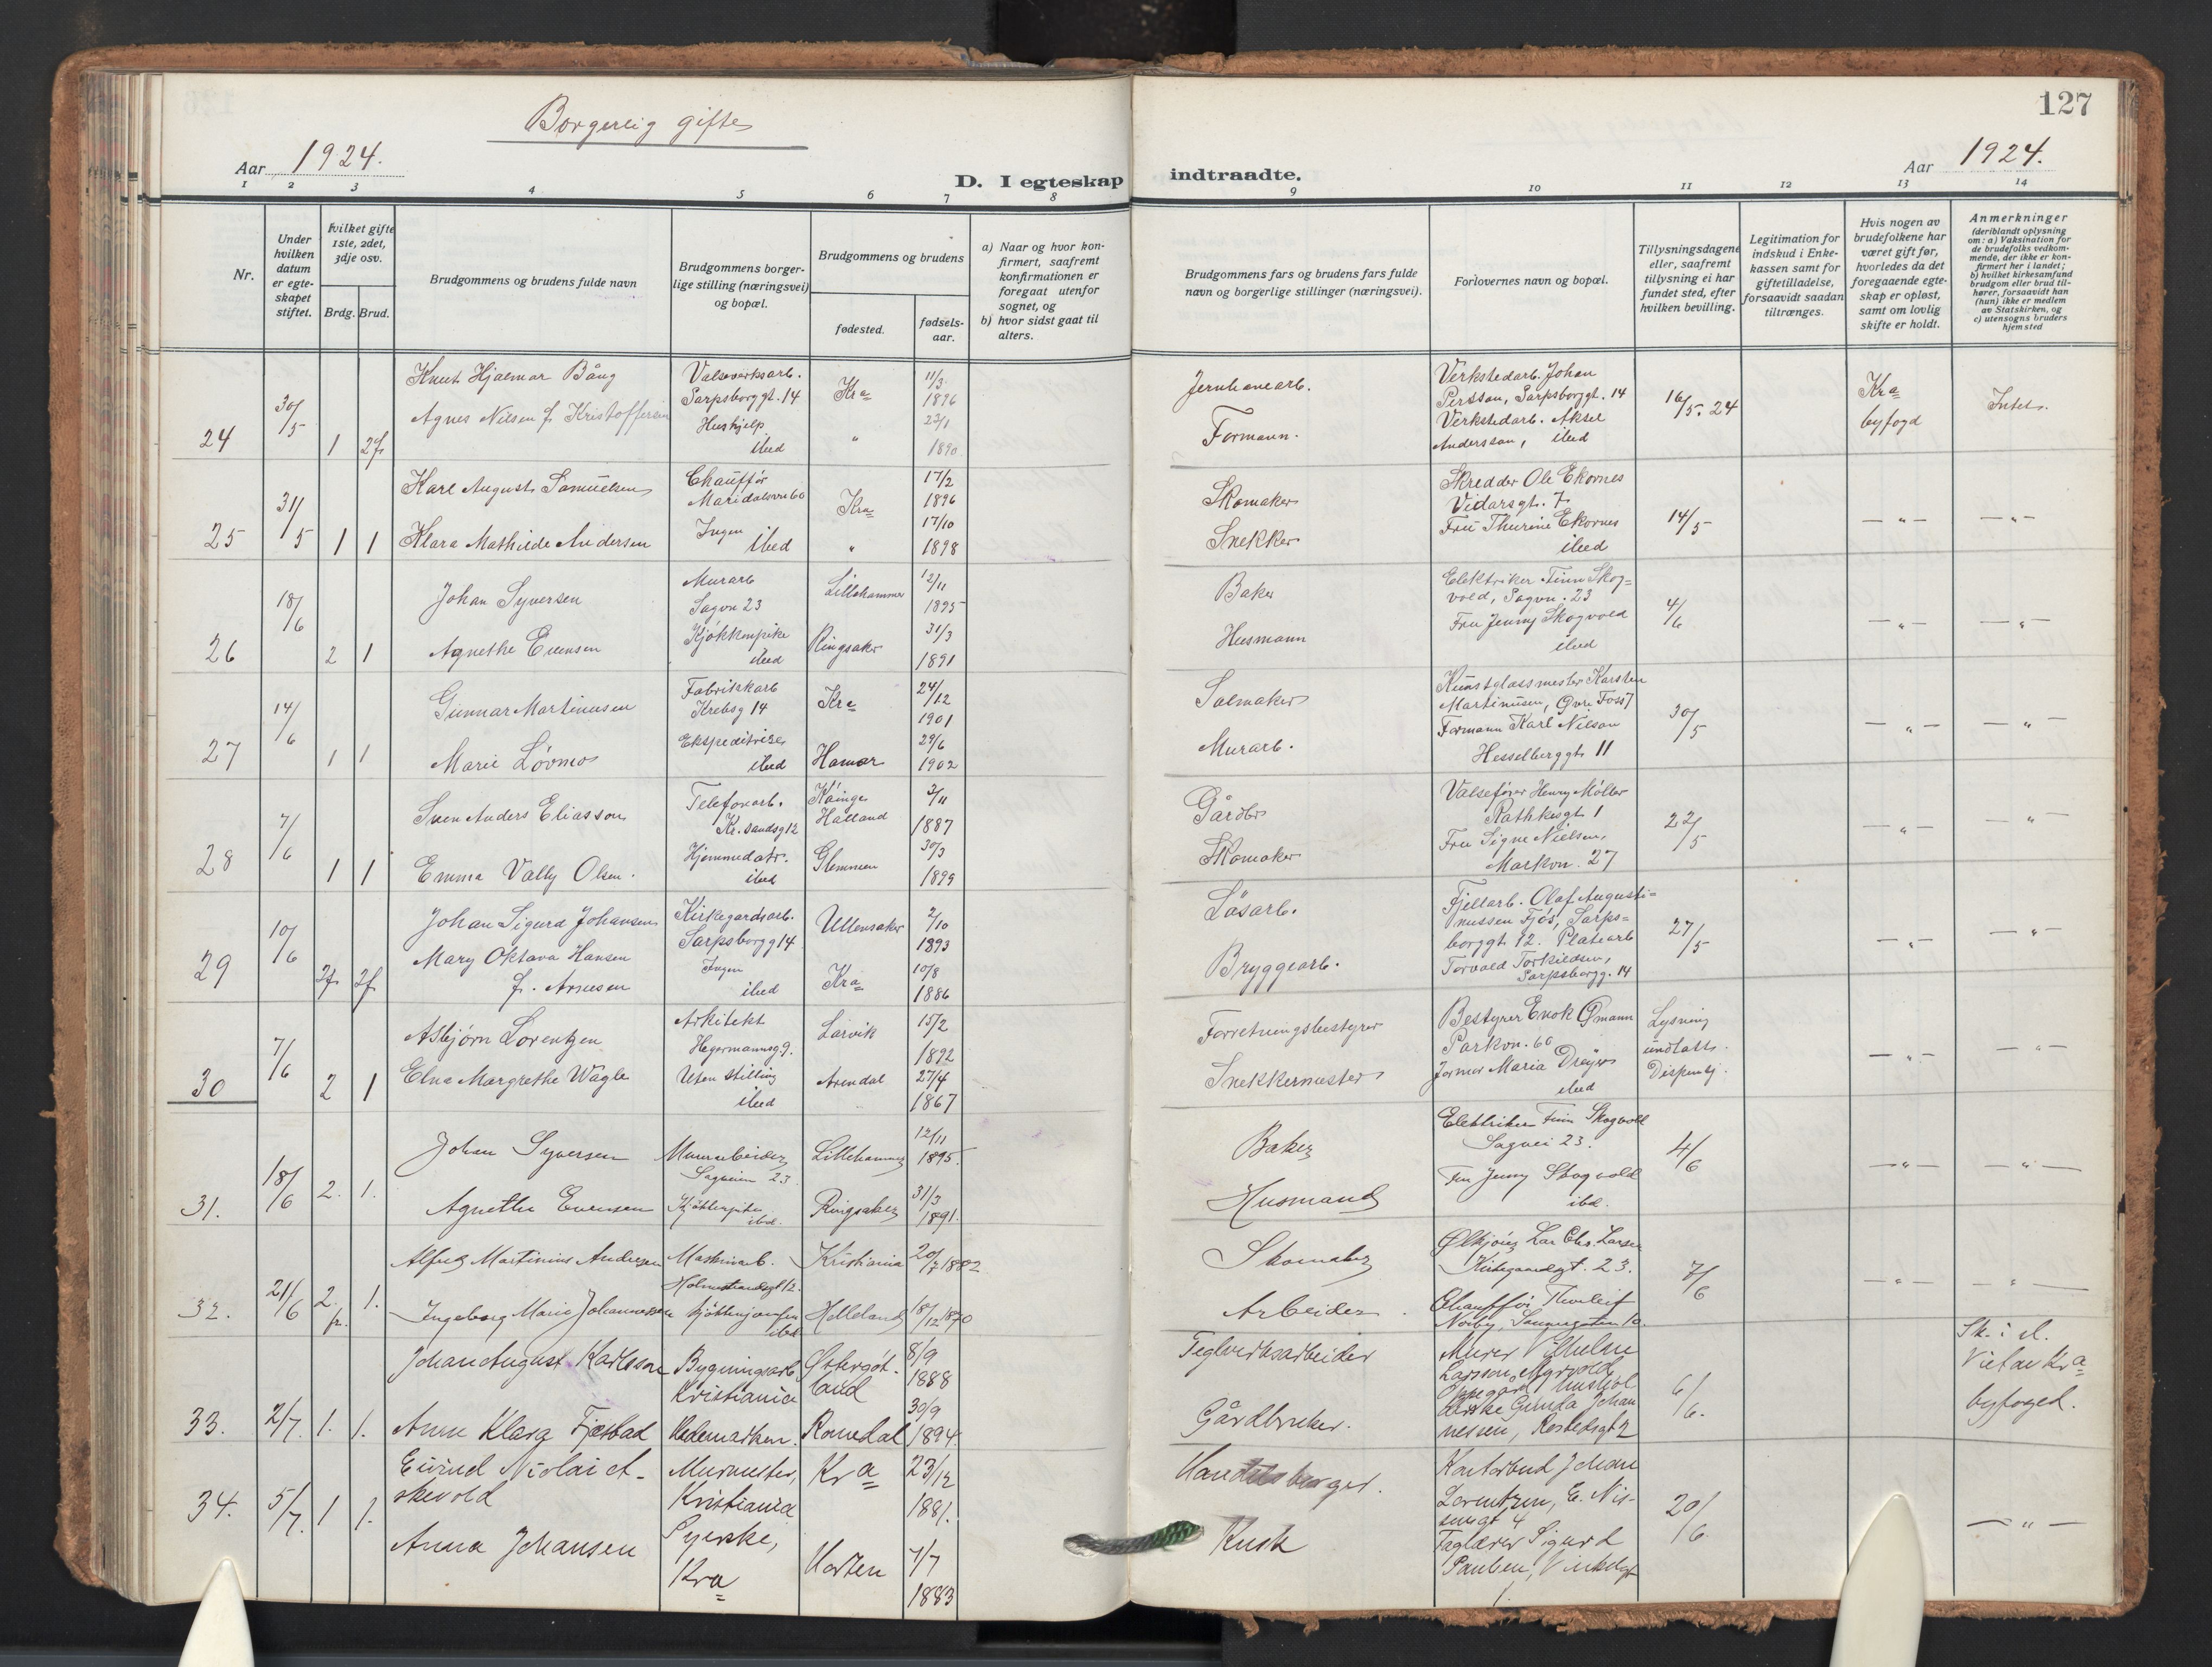 127
Borgerlig gifte
Aar 1924.
D. I egteskap indtraadte.
Aar 1924.
1 2 3 4 5 6 7 8 9 10 11 12 13 14
Nr.
Under hvilken datum er egte- skapet stiftet.
hvilket gifte 1ste, 2det, 3dje osv.
Brdg. Brud.
Brudgommens og brudens fulde navn
Brudgommens borger- lige stilling (næringsvei) og bopæl.
Brudgommens og brudens
fødested.
fødsels- aar.
a) Naar og hvor kon- firmert, saafremt konfirmationen er foregaat utenfor sognet, og
b) hvor sidst gaat til alters.
Brudgommens fars og brudens fars fulde navn og borgerlige stillinger (næringsvei).
Forlovernes navn og bopæl.
Tillysningsdagene eller, saafremt tillysning ei har fundet sted, efter hvilken bevilling.
Legitimation for indskud i Enke- kassen samt for giftetilladelse, forsaavidt saadan tiltrænges.
Hvis nogen av brudefolkene har været gift før, hvorledes da det foregaaende egte- skap er opløst, samt om lovlig skifte er holdt.
Anmerkninger (deriblandt oplysning om: a) Vaksination for de brudefolks vedkom- mende, der ikke er kon- firmert her i landet; b) hvilket kirkesamfund brudgom eller brud til- hører, forsaavidt han (hun) ikke er medlem av Statskirken, og c) utensogns bruders hjemsted
24 30/5 1 2f
Knut Hjalmar Bång Valseverksarb. Sarpsborggt. 14 Kra 11/3 1896
Agnes Nilsen f. Kristoffersen Hushjelp ibid " 23/1 1890
Jernhanearb.
Formann.
Verkstedarb. Johan
Persson, Sarpsborggt. 14
Verkstedarb. Aksel
Andersson, ibid
16/5. 24
Kra byfogd
Intet.
25 31/5 1 1
Karl August Samuelsen Chauffør Maridalsvn 60 Kra 17/2 1896
Klara Mathilde Andersen Ingen ibid " 17/10 1898
Skomaker
Snekker
Skredder Ole Ekornes
Vidarsgt. 7
Fru Thurine Ekornes
ibid
14/5
— " — — " —
26 18/6 2 1
Johan Syversen Murarb Sagvn 23 Lillehammer 12/11 1895
Agnethe Evensen Kjøkkenpike ibid Ringsaker 31/3 1891
Baker
Husmann
Elektriker Finn Skog-
vold, Sagvn. 23
Fru Jenny Skogvold
ibid
4/6
— " — — " —
27 14/6 1 1
Gunnar Martinusen Fabrikkarb Krebsg 14 Kra 24/12 1901
Marie Løvmo Ekspeditrise ibid Hamar 29/6 1902
Salmaker
Murarb.
Kunstglassmester Karsten
Martinusen, Øvre Foss 7
Formann Karl Nilsen
Hesselberggt 11
30/5
— " — — " —
28 7/6 1 1
Sven Anders Eliasson Telefonarb. Kr. sandsg 12 Halland 3/11 1887
Emma Vally Olsen. Hjemmedatr. ibid Glemmen 30/3 1899
Gårdbr
Skomaker
Valsefører Henry Møller
Rathkesgt 1
Fru Signe Nielsen,
Markvn. 27
22/5
— " — — " —
29 10/6 2f 2f
Johan Sigurd Johansen Kirkegårdsarb. Sarpsborgg 14 Ullensaker 2/10 1893
Mary Oktava Hansen f. Arnesen Ingen ibid Kra 10/8 1886
Løsarb.
Bryggearb.
Fjellarb. Olaf Augusti-
nussen Fjøs, Sarps-
borggt 12. Platearb
Torvald Torkildsen,
Sarpsborgg. 14
27/5
— " — — " —
30 7/6 2 1
Asbjørn Lorentzen Arkitekt Hegermannsg 9. Larvik 15/2 1892
Elna Margrethe Wagle Uten stilling ibid Arendal 27/4 1867
Forretningsbestyrer
Snekkermester
Bestyrer Enok Gmann
Parkvn. 60
Jormor Maria Dreyer
ibid
Lysning undlatt. Dispensj.
— " — — " —
31. 18/6 2. 1.
Johan Syversen Murarbeider Sagveien 23 Lillehammer 12/11 1895.
Agnethe Evensen Kjøkkenpike ibd. Ringsaker 31/3 1891.
Baker
Husmand
Elektriker Finn Skogvold
Sagvei 23.
Fru Jenny Skogvold
ibd.
4/6
— " — — " —
32. 21/6 2. fr. 1.
Alfred Martinius Andersen Maskinarb. Holmestrandsgt 12. Kristiania 20/7 1882
Ingeborg Marie Johannessen ibd Helleland 18/12 1870
Skomaker
Arbeider
Ølkjører Lar Chr. Larsen
Kirkegaardsgt. 23.
Chauffør Thorleif
Norby,
7/6
— " — — " —
33. 2/7. 1. 1.
Johan August Karlsson Bygningsarb Kristiania Østergøt- land 8/9 1888
Anna Klara Fjæstad Hedemarken. Romedal 30/9 1894.
Teglverksarbeider
Gårdbruker.
Murer Vilhelm
Larsson, Myrvold
Oppegård, hushol
derske Gunda Johan
nessen, Rostedsgt 2
6/6.
Sk. i el.
Viet av Kra
byfoged.
34. 5/7. 1 1.
Eivind Nicolai A- skevold Murmester, Kristiania Kra 23/12 1881.
Anna Johansen Syerske, Kra Horten 7/7 1883
Handelsborger.
Kusk
Kontorbud Johan
Lorentzen, E. Nis-
sensgt 4
Faglærer Sigurd
Paulsen,
1.
20/6
— " —